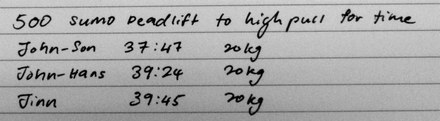 500 sumo Deadlift to high pull for time
John-Son 37:47 20kg
John-Hans 39:24 20kg
Jinn 39:45 20kg